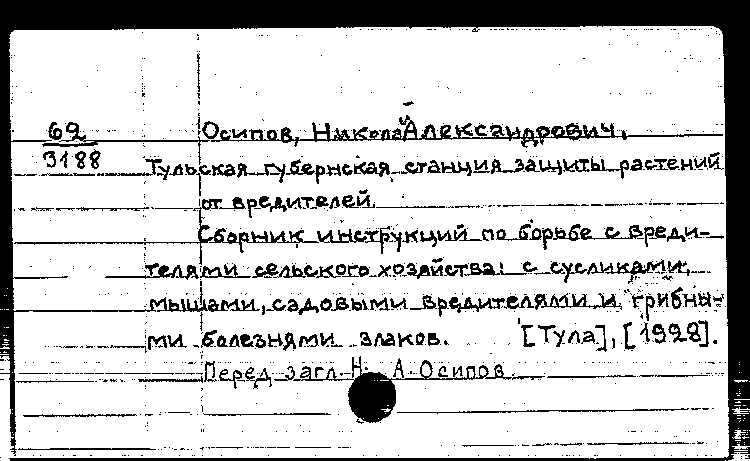 62
3188
Осипов, Николай Александрович.
Тульская губернская станция защиты растений
от вредителей.
Сборник инструкций по борьбе с вреди-
телями сельского хозяйства: с сусликами,
мышами, садовыми вредителями и грибны-
ми болезнями злаков. [Тула], [1928].
Перед загл. Н. А. Осипов.